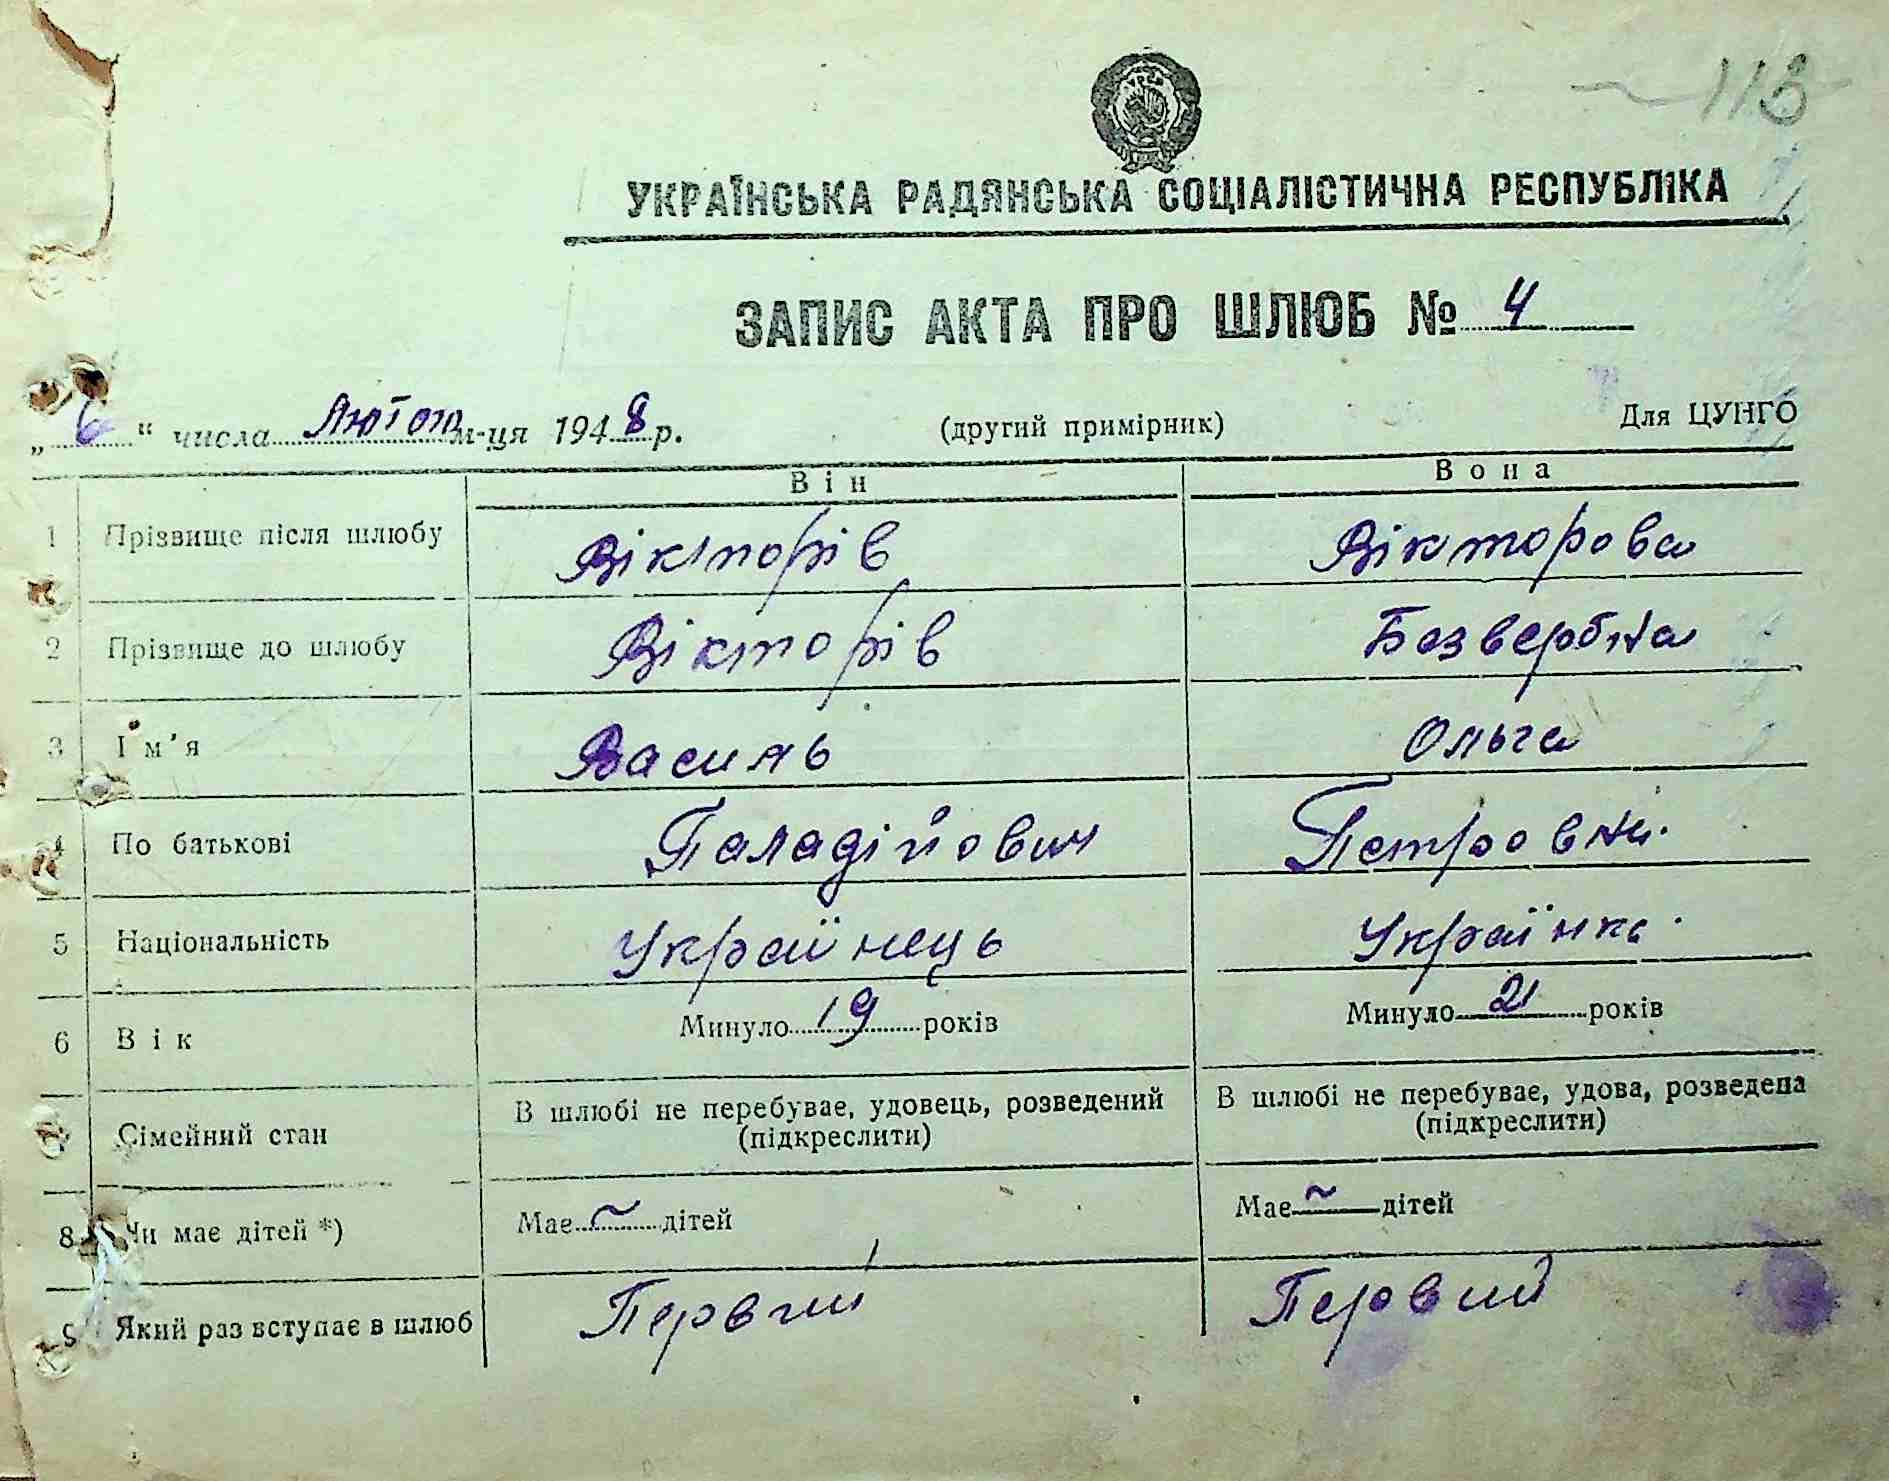 113
УКРАЇНСЬКА РАДЯНСЬКА СОЦІАЛІСТИЧНА РЕСПУБЛІКА
ЗАПИС АКТА ПРО ШЛЮБ № 4
„ 6 “ числа Лютого м-ця 1948 р. (другий примірник) Для ЦУНГО
Він Вона
1 Прізвище після шлюбу Вікторів Вікторова
2 Прізвище до шлюбу Вікторів Безвербна
3 Ім'я Василь Ольга
4 По батькові Паладійович Петровна
5 Національність Українець Українка
6 Вік Минуло 19 років Минуло 21 років
7 Сімейний стан В шлюбі не перебуває, удовець, розведений (підкреслити) В шлюбі не перебуває, удова, розведена (підкреслити)
8 Чи має дітей *) Має ~ дітей Має ~ дітей
9 Який раз вступає в шлюб Первий Первий